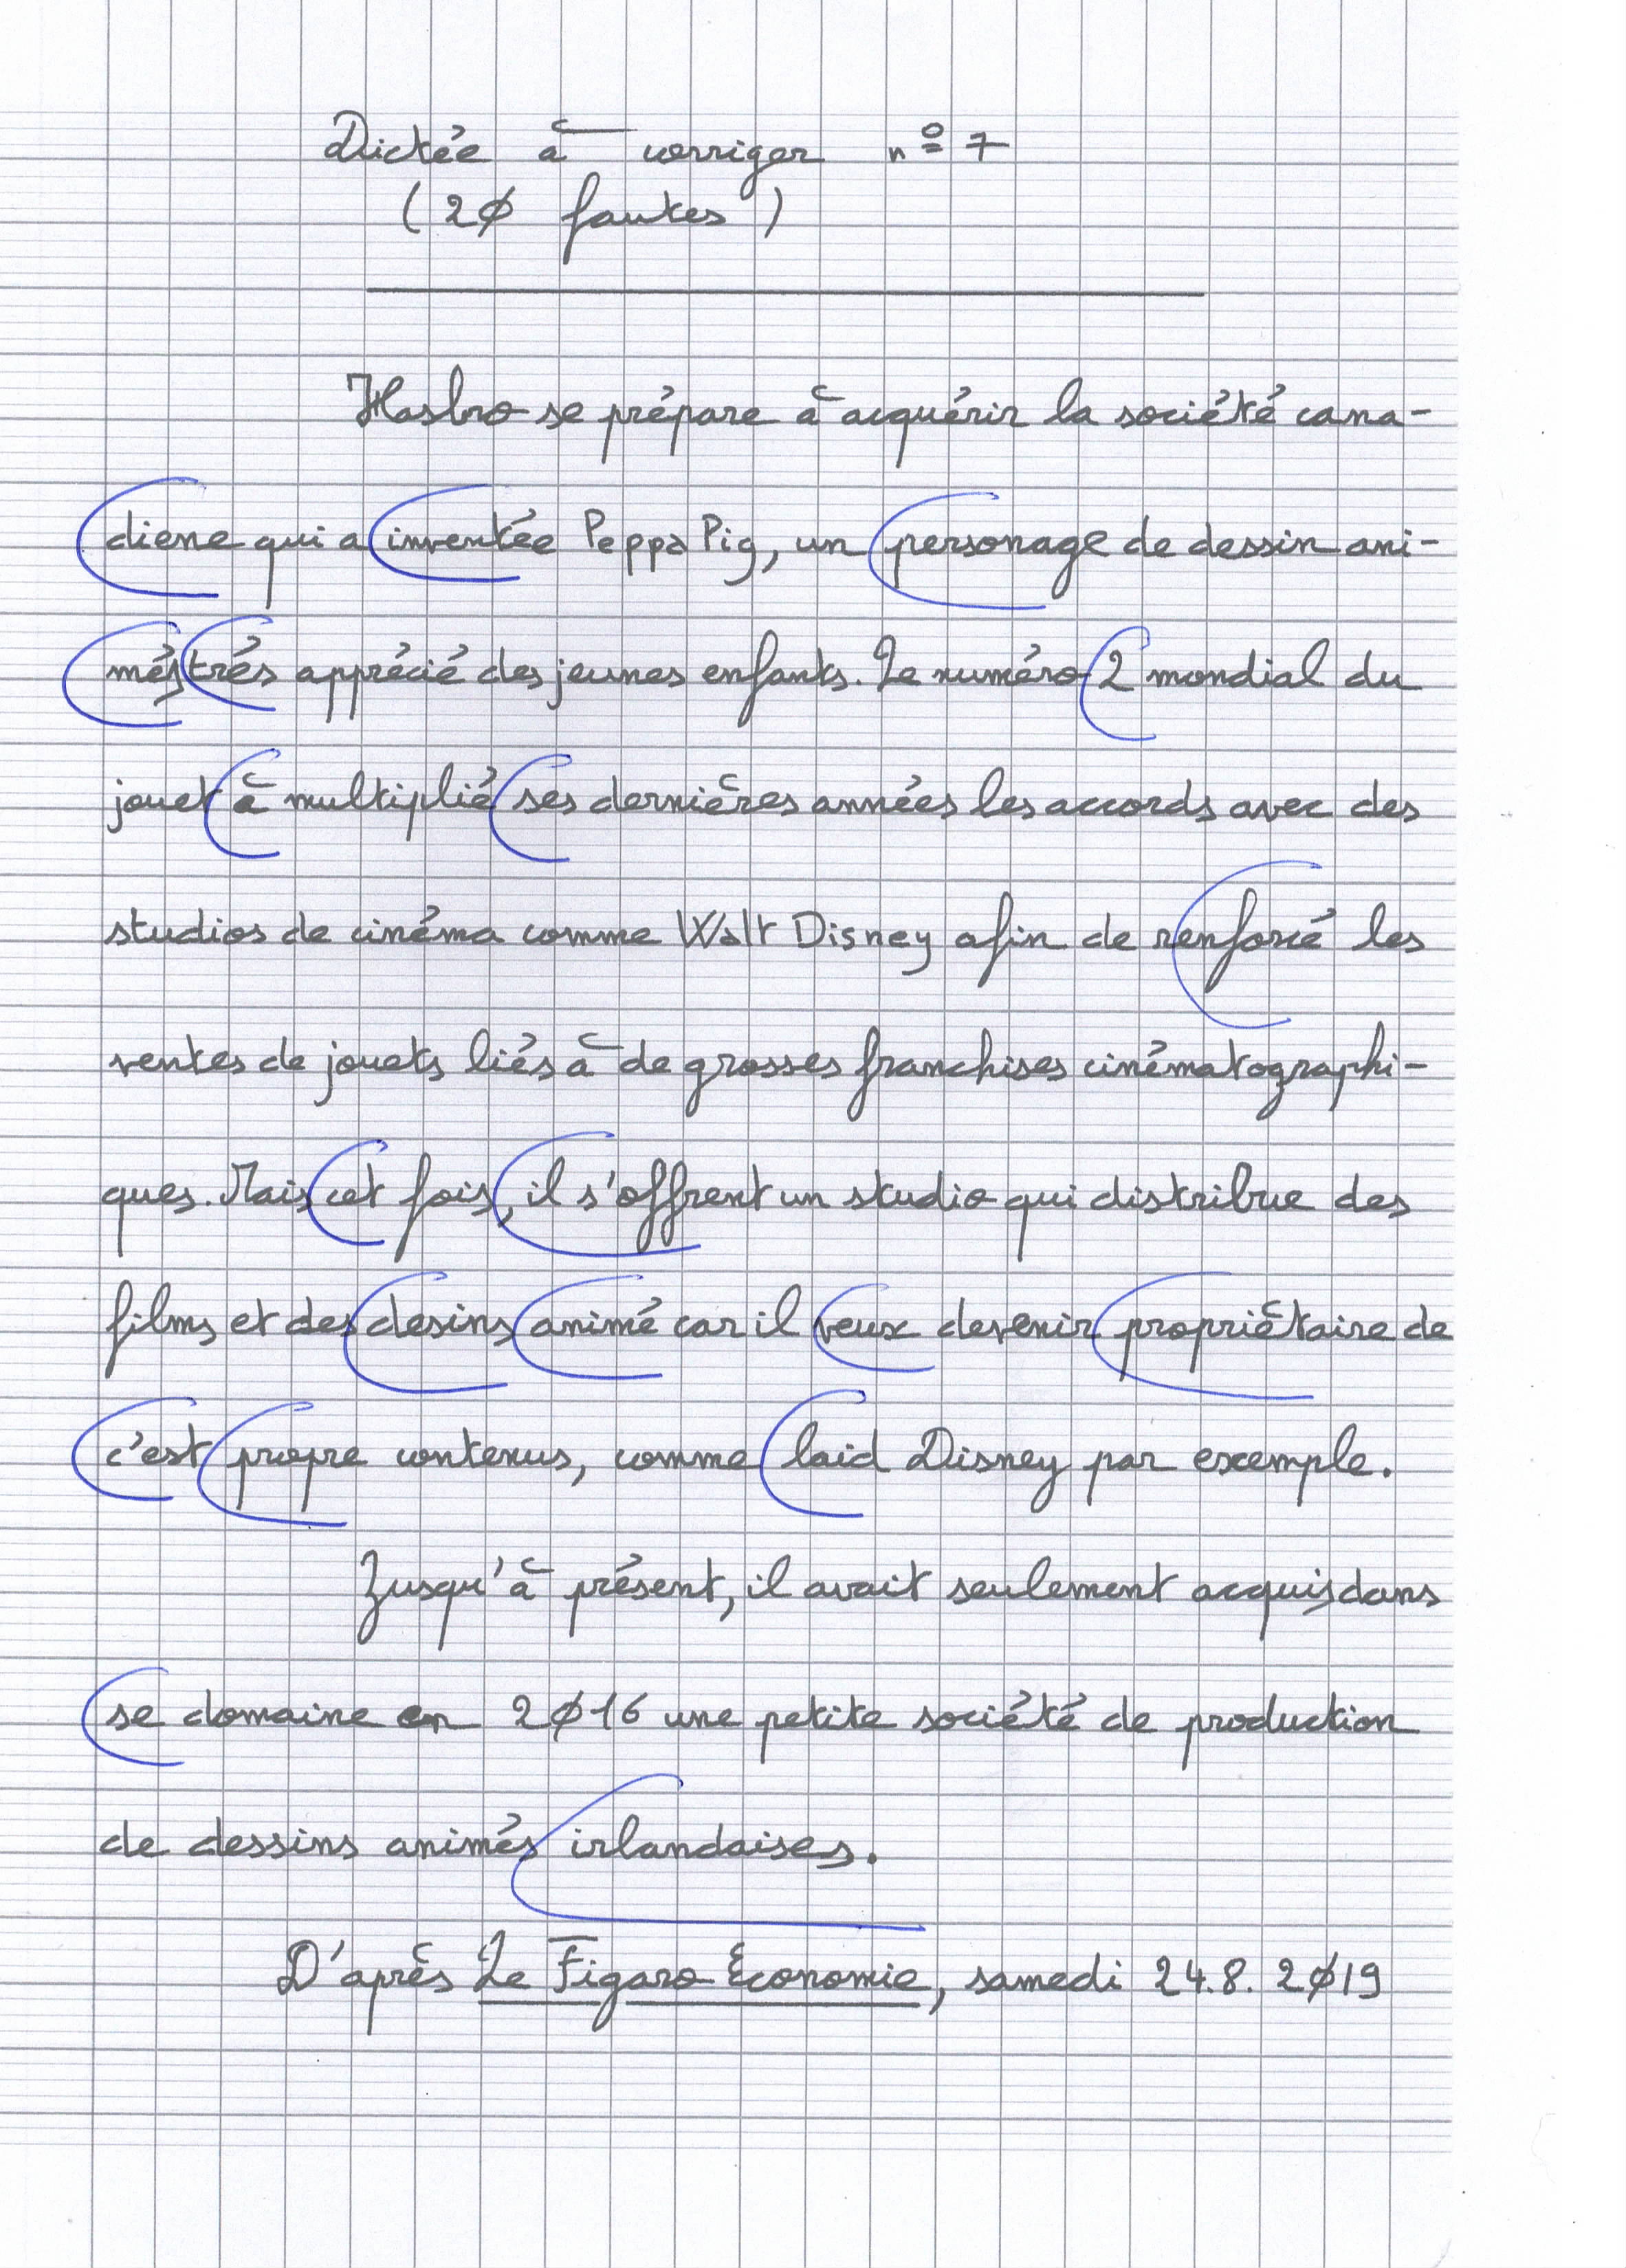 Dictée à corriger n° 7
(20 fautes)
Hasbro se prépare à acquérir la société cana-
diene qui a inventée Peppa Pig, un personage de dessin ani-
més trés apprécié des jeunes enfants. Le numéro 2 mondial du
jouet à multiplié ses dernières années les accords avec des
studios de cinéma comme Walt Disney afin de renforcé les
ventes de jouets liés à de grosses franchises cinématographi-
ques. Mais cet fois, il s'offrent un studio qui distribue des
films et des desins animé car il veux devenir propriètaire de
c'est propre contenus, comme laid Disney par exemple.
Jusqu'à présent, il avait seulement acquis dans
se domaine en 2016 une petite société de production
de dessins animés irlandaises.
D'après Le Figaro Économie, samedi 24.8.2019